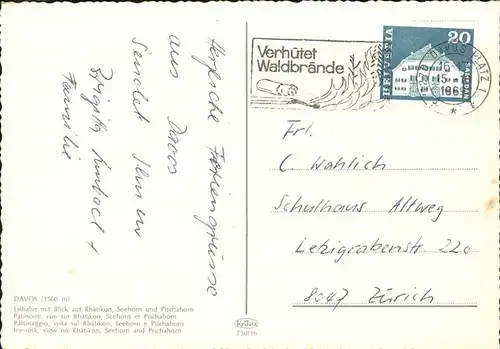 Herzliche Feriengrüsse
aus Davos
Sendet Ihnen
Brigitte +
Familie
DAVOS (1560 m)
Eisbahn mit Blick auf Rhätikon, Seehorn und Pischahorn
Patinoire, vue sur Rhätikon, Seehorn et Pischahorn
Pattinaggio, vista sul Rhätikon, Seehorn e Pischahorn
Ice-rink, view on Rhätikon, Seehorn and Pischahorn
Verhütet
Waldbrände
DAVOS PLATZ 1
15
HELVETIA
20
SAMEDAN
Frl.
C. Wahlich
Schulhaus Altweg
Letzigrabenstr. 220
8047 Zürich